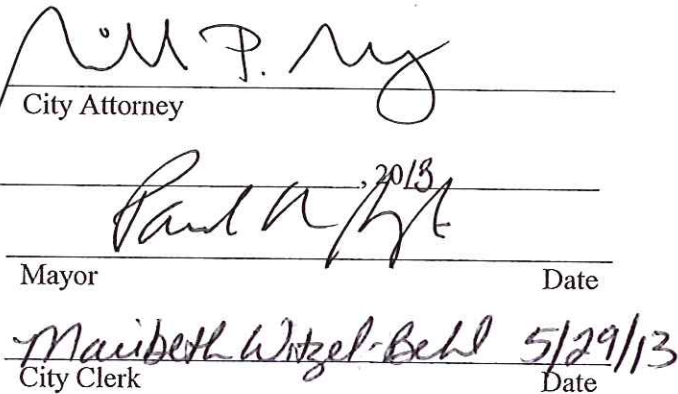 P.
City Attorney
, 2013
Paul
Mayor Date
Maribeth Witzel-Behl 5/29/13
City Clerk Date